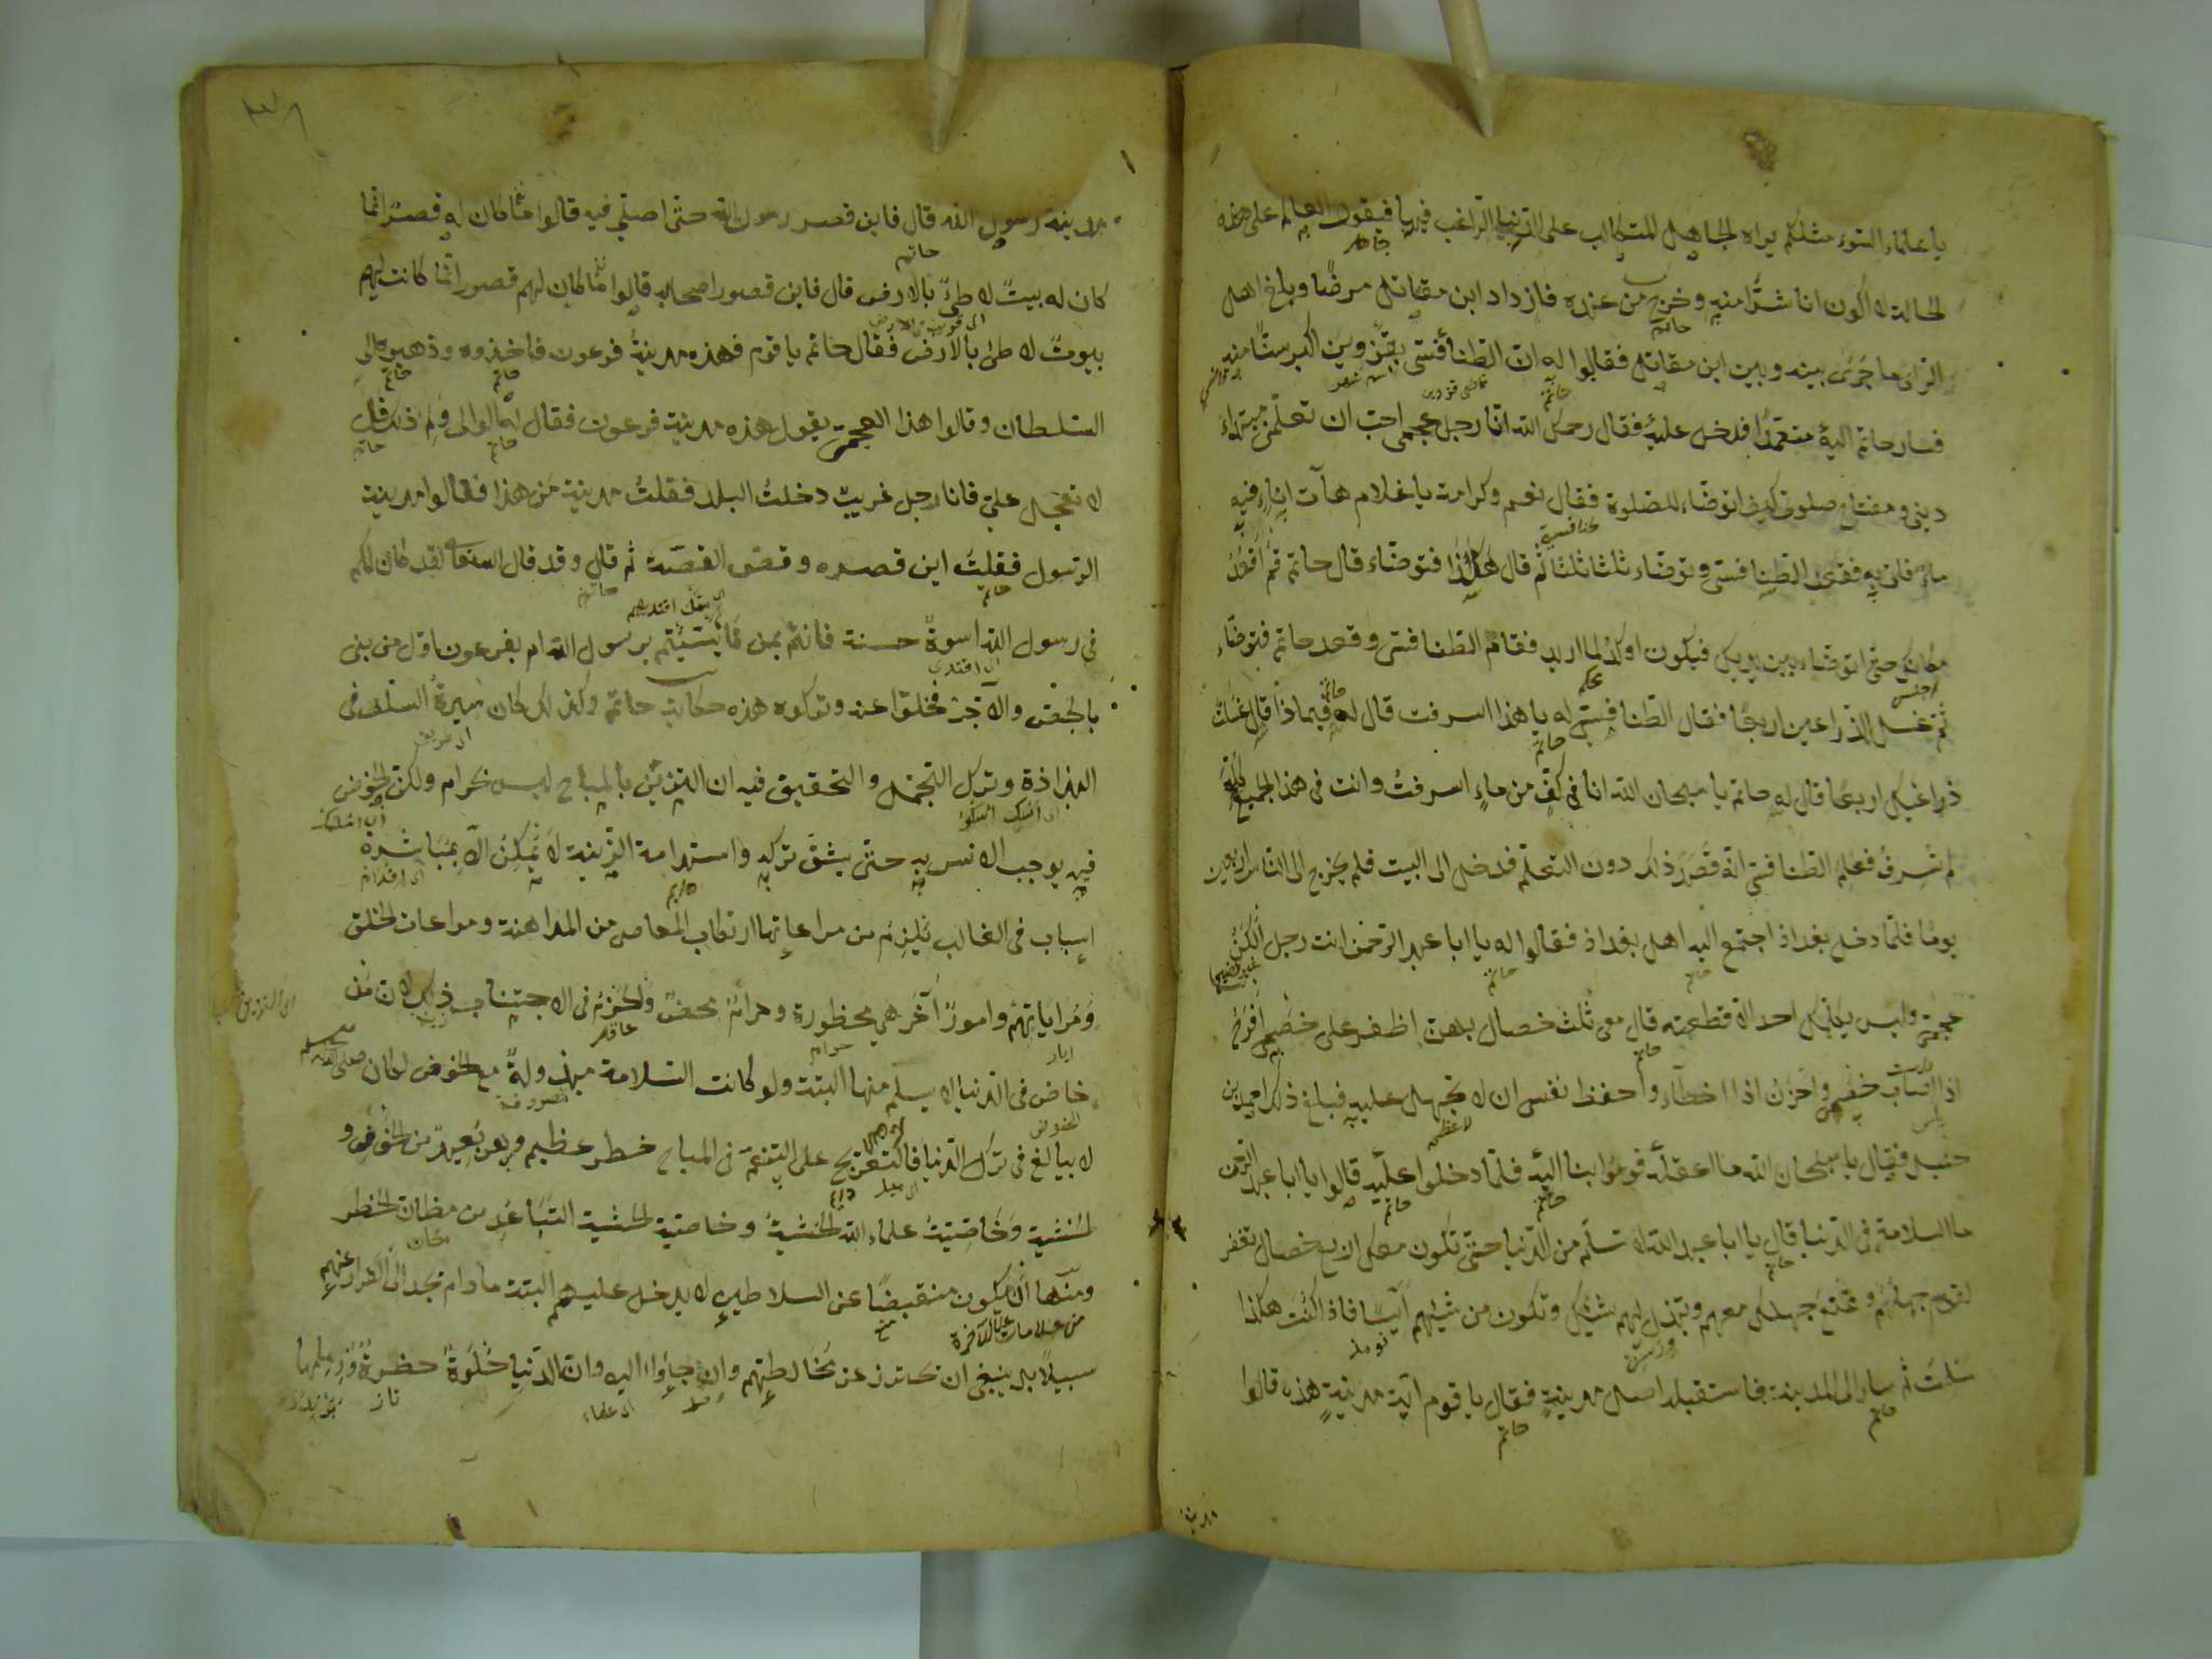 يا علماء السوء مثلكم يراه الجاهل المتكالب على الدنيا الراغب فيها فيقول العالم على هذه
الحالة لا اكون انا شرًّا منه وخرج من عنده فازداد ابن مقاتل مرضًا وبلغ اهل
الرى ما جرى بينه وبين ابن مقاتل فقالوا له ان الطنافسى بقزوين اكبر سنًّا منه
فسار حاتم اليه متعمدًا فدخل عليه فقال رحمك الله انا رجل عجمى احب ان تعلمنى مبتداء
دينى ومفتاح صلوتى كيف اتوضاء للصلوة فقال نعم وكرامة يا غلام هات اناء فيه
ماء فاتى به فقعد الطنافسى وتوضاء ثلثا ثلثا ثم قال هكذا فتوضاء قال حاتم قم اقعد
مكانك حتى اتوضاء بين يديك فيكون اوكد لما اريد فقام الطنافسى وقعد حاتم فتوضاء
ثم غسل الذراعين اربعًا فقال الطنافسى له يا هذا اسرفت قال له فيماذا قال غسلت
ذراعيك اربعًا قال له حاتم يا سبحان الله انا فى كف من ماء اسرفت وانت فى هذا الجميع كله
لم تسرف فعلم الطنافسى انه قصد ذلك دون التعلم فدخل الى البيت فلم يخرج الى الناس اربعين
يومًا فلما دخل بغداذ اجتمع اليه اهل بغداذ فقالوا له يا ابا عبد الرحمن انت رجل الكن
عجمى وليس يكلمك احد الا قطعته قال معى ثلث خصال بهن اظفر على خصمى افرح
اذا اصاب خصمى واحزن اذا اخطاء واحفظ نفسى ان لا تجهل عليه فبلغ ذلك احمد بن
حنبل فقال يا سبحان الله ما اعقله قوموا بنا اليه فلما دخلوا عليه قالوا يا ابا عبد الرحمن
ما السلامة فى الدنيا قال يا ابا عبد الله لا تسلم من الدنيا حتى تكون معك اربع خصال تغفر
لقوم جهلهم وتمنع جهلك معهم وتبذل لهم شيئك وتكون من شيئهم آيسًا فاذا كنت هكذا
سلمت ثم سار الى المدينة فاستقبله اهل مدينة فقال يا قوم اية مدينة هذه قالوا
مدينة رسول الله قال فاين قصر رسول الله حتى اصلى فيه قالوا ما كان له قصر انما
كان له بيت لاطئ بالارض قال فاين قصور اصحابه قالوا ما كان لهم قصور انما كانت لهم
بيوت لاطئ بالارض فقال حاتم يا قوم فهذه مدينة فرعون فاخذوه وذهبوا به الى
السلطان وقالوا هذا العجمى يقول هذه مدينة فرعون فقال الوالى ولم ذلك قال
لا تعجل على فانا رجل غريب دخلت البلد فقلت مدينة من هذا فقالوا مدينة
الرسول فقلت اين قصره وقص القصة ثم قال وقد قال الله تعالى لقد كان لكم
فى رسول الله اسوة حسنة فانتم بمن تأسيتم برسول الله ام بفرعون اول من بنى
بالجص والآجر فخلوا عنه وتركوه هذه حكايت حاتم وكذلك كان سيرة السلف فى
البذاذة وترك التجمل والتحقيق فيه ان التزين بالمباح ليس بحرام ولكن الخوض
فيه يوجب الانس به حتى يشق تركه واستدامة الزينة لا يمكن الا بمباشرة
اسباب فى الغالب يلزم من مراعاتها ارتكاب المعاصى من المداهنة ومراعات الخلق
ومراياتهم وامور آخر هى محظورة وحرام محض والحزم فى الاجتناب ذلك لان من
خاض فى الدنيا لا يسلم منها البتة ولو كانت السلامة مبذولة مع الخوض لكان صلى الله عليه
لا يبالغ فى ترك الدنيا فالتعريج على التنعم فى المباح خطر عظيم وهو بعيد من الخوف و
الخشية وخاصية علماء الله الخشية وخاصية الخشية التباعد من مظان الخطر
ومنها ان يكون منقبضًا عن السلاطين لا يدخل عليهم البتة مادام يجد الى الفرار عنهم
سبيلًا بل ينبغى ان يحترز عن مخالطتهم وان جاؤا اليه وان الدنيا حلوة خضرة وزمامها